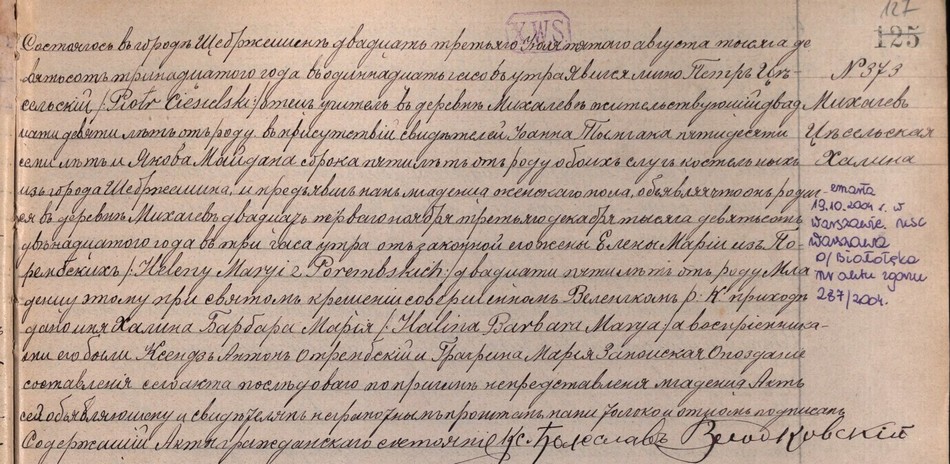 127
125
XWS
Состоялось въ городѣ Щебржешинѣ двадцать третьяго Іюля пятаго августа тысяча де
вятьсотъ тринадцатого года въ одиннадцать часовъ утра Явился лично Петръ Цѣ-
сельскій /Piotr Ciesielski:/ отецъ учитель въ деревнѣ Михалевъ жительствующій двад
цати девяти лѣтъ отъ роду въ присутствіи свидѣтелей Іоанна пятидесяти
семи лѣтъ и Якова Майдана сорока пяти лѣтъ отъ роду обоихъ слугъ костельныхъ
изъ города Щебржешина, и предъявилъ намъ младенца женскаго пола, объявляя что онъ родил
ся въ деревнѣ Михалевъ двадцать перваго ноября третьяго декабря тысяча девятьсотъ
двѣнадцатого года въ три часа утра отъ законной его жены Елены Маріи изъ По-
рембскихъ /:Heleny Maryi z Porembskich:/ двадцати пяти лѣтъ отъ роду Мла
денцу этому при святомъ крещеніи совершённомъ р: К: приходѣ
дано имя Халина Барбара Марія /:Halina Barbara Marya:/ а воспріемника-
ми его были Ксендзъ Антонъ Отрембскій и Марія Опозданіе
составленія сего акта послѣдовало по причинѣ непредставленія младенца Актъ
сей объявляющему и свидѣтелямъ неграмотнымъ прочитанъ нами только и отцомъ подписанъ
Содержащій Акты гражданскаго состоянія Кс. Болеславъ
N 373
Михалевъ
Цѣсельская
Халина
zmarła
19.10.2004 r. w
Warszawie. USC
Warszawa
D/Białołęka
nr aktu zgonu
287/2004.